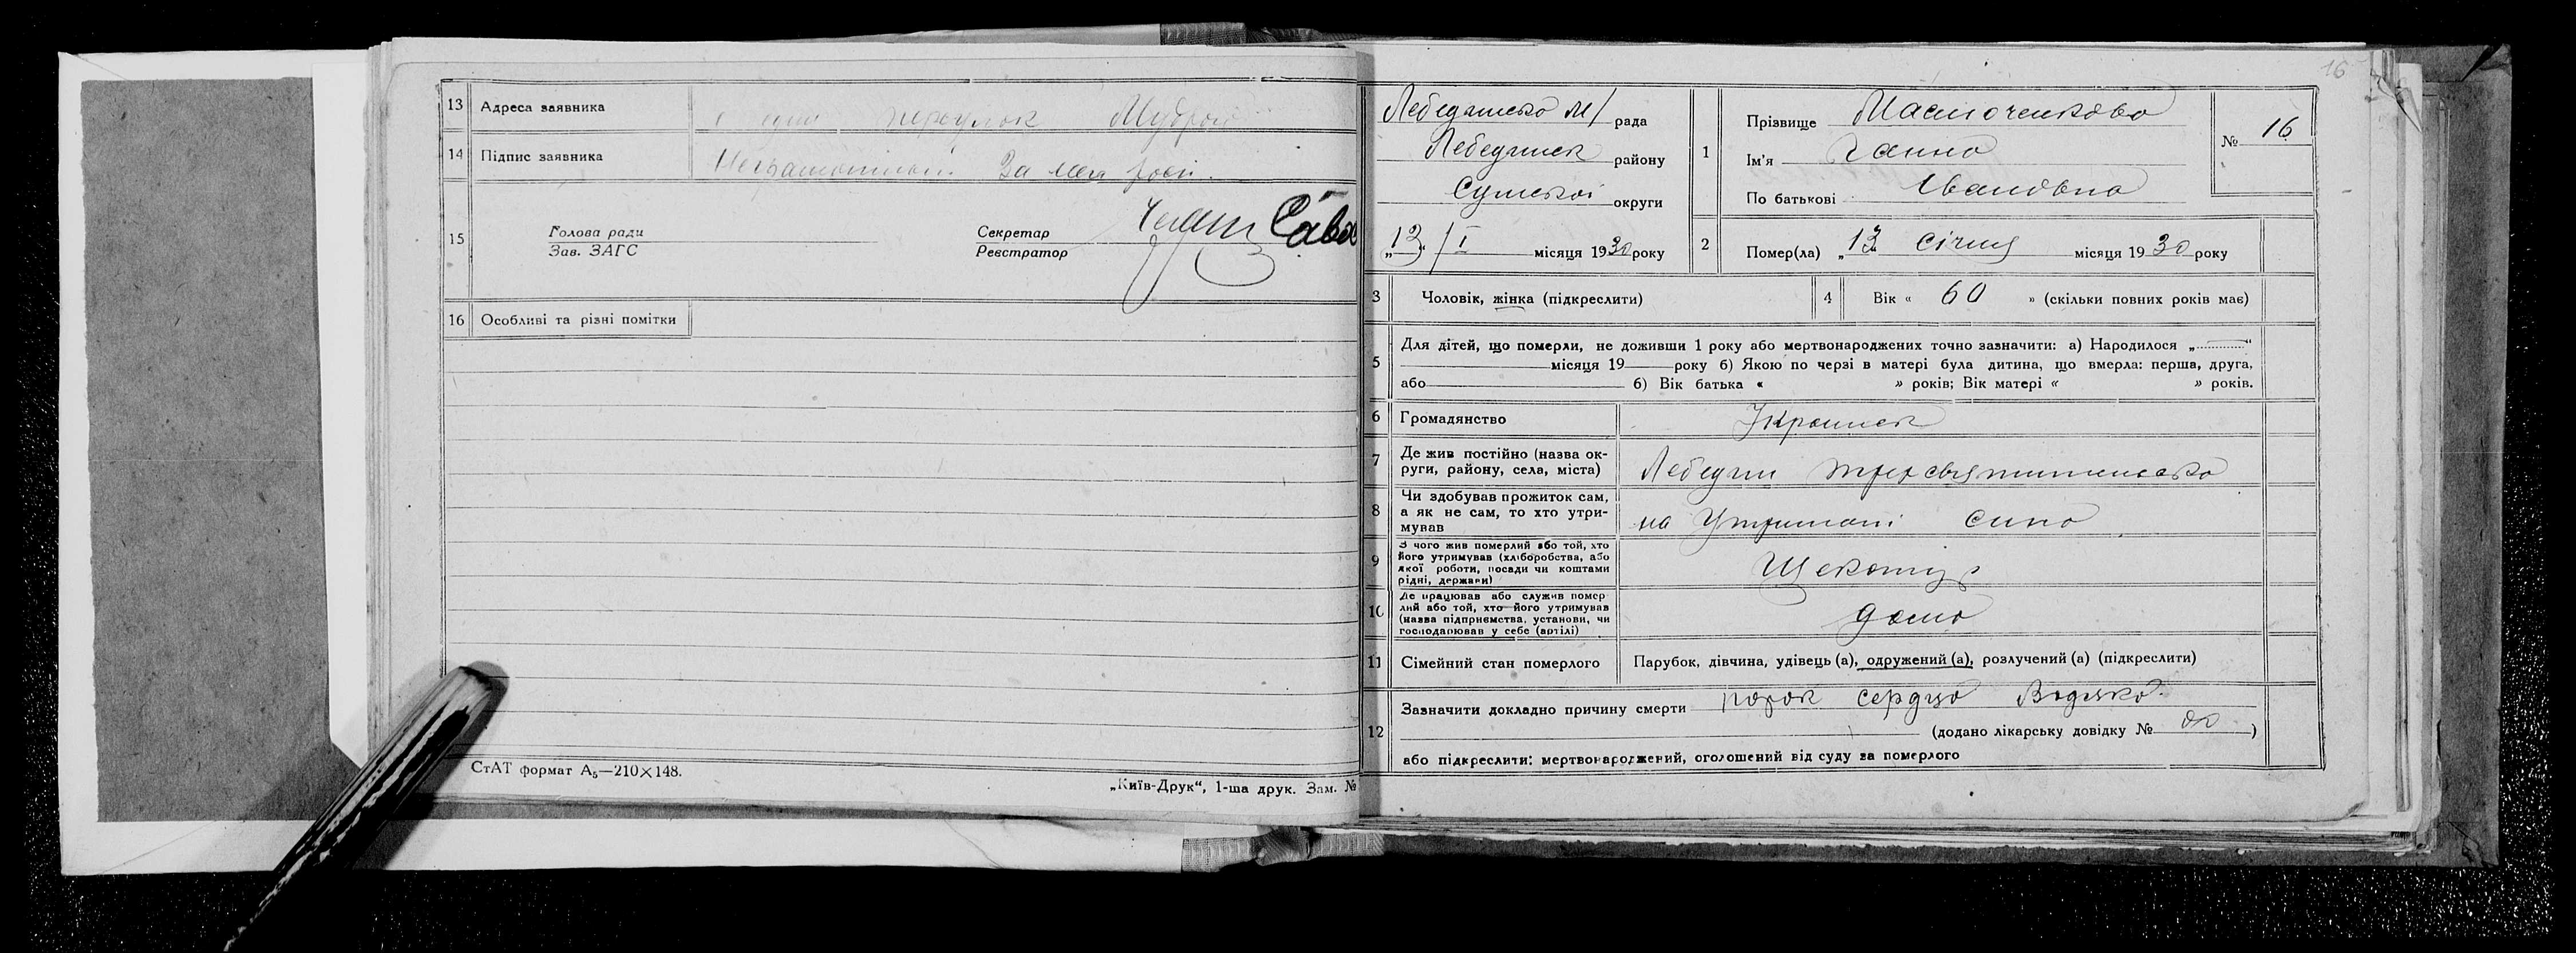 13 Адреса заявника переулок
14 Підпис заявника
15 Голова ради Секретар
Зав. ЗАГС Реєстратор
16 Особливі та різні помітки
СтАТ формат А₅—210×148.
„Київ-Друк“, 1-ша друк. Зам. №
16
рада
Лебединск району
Сумської округи
„13“ / I місяця 1930 року
1 Прізвище
Ім'я Ганна
По батькові Івановна
№ 16
2 Помер(ла) „13 січня місяця 1930 року
3 Чоловік, жінка (підкреслити)
4 Вік « 60 » (скільки повних років має)
5 Для дітей, що померли, не доживши 1 року або мертвонароджених точно зазначити: а) Народилося „ “
місяця 19 року б) Якою по черзі в матері була дитина, що вмерла: перша, друга,
або б) Вік батька « » років; Вік матері « » років.
6 Громадянство Украинск
7 Де жив постійно (назва ок-
руги, району, села, міста) Лебедин
8 Чи здобував прожиток сам,
а як не сам, то хто утри-
мував на утримані сина
9 З чого жив померлий або той, хто
його утримував (хліборобства, або
якої роботи, посади чи коштами
рідні, держави) Щекотур
10 Де працював або служив помер
лий або той, хто його утримував
(назва підприємства, установи, чи
господарював у себе (артілі) дома
11 Сімейний стан померлого Парубок, дівчина, удівець (а), одружений (а), розлучений (а) (підкреслити)
12 Зазначити докладно причину смерти порок сердца Водянка
(додано лікарську довідку № )
або підкреслити: мертвонароджений, оголошений від суду за померлого